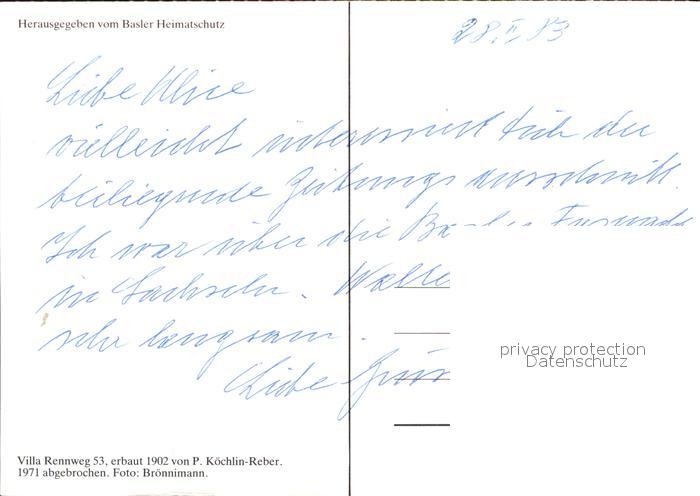 Herausgegeben vom Basler Heimatschutz
28.II.83
Liebe Alice
vielleicht interessiert Dich der
beiliegende Zeitungsausschnitt.
Ich war über die Ba
in Sachseln. Walte
sehr langsam.
Liebe Grü
privacy protection
Datenschutz
Villa Rennweg 53, erbaut 1902 von P. Köchlin-Reber.
1971 abgebrochen. Foto: Brönnimann.